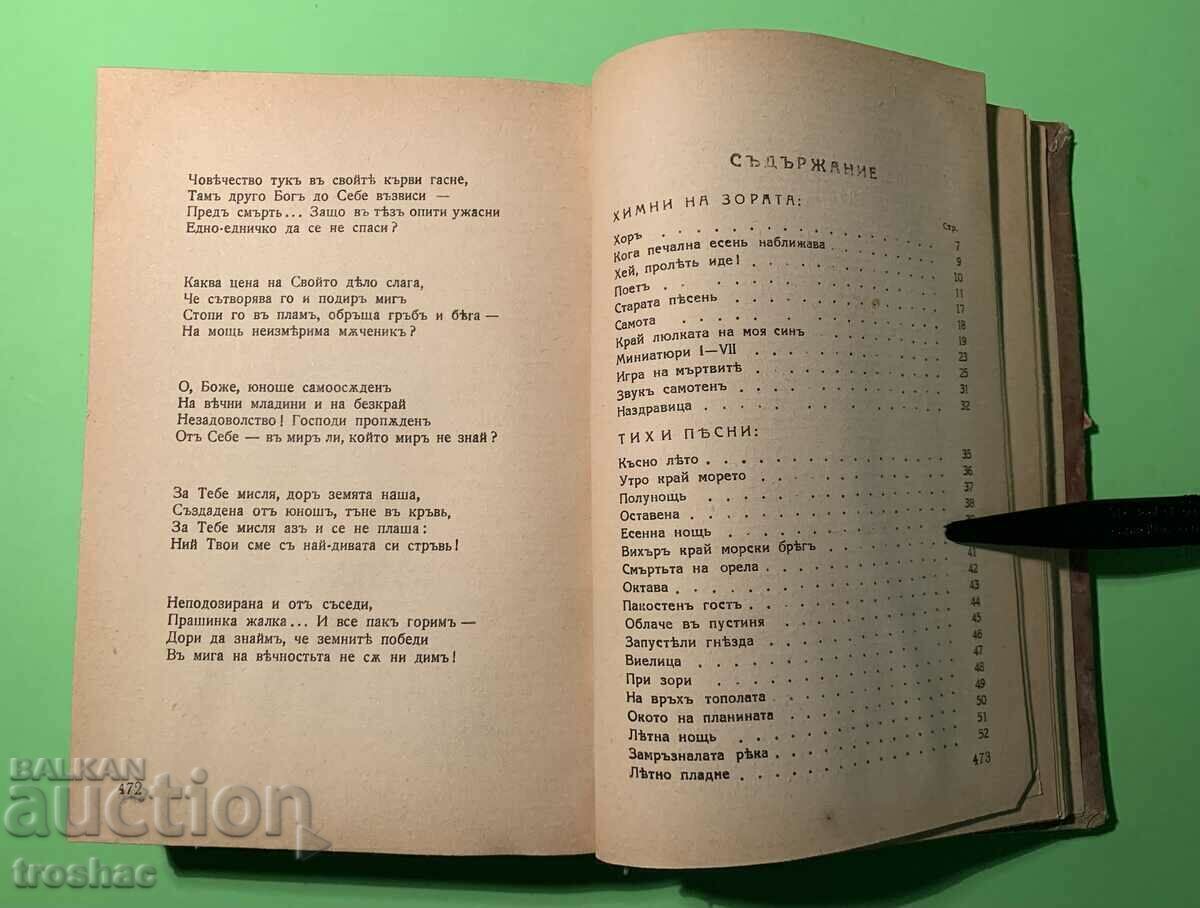 Човѣчество тукъ въ свойтѣ кърви гасне,
Тамъ друго Богъ до Себе възвиси —
Предъ смърть... Защо въ тѣзъ опити ужасни
Едно-едничко да се не спаси?
Каква цена на Свойто дѣло слага,
Че сътворява го и подиръ мигъ
Стопи го въ пламъ, обръща гръбъ и бѣга —
На мощь неизмѣрима мѫченикъ?
О, Боже, юноше самоосѫденъ
На вѣчни младини и на безкрай
Незадоволство! Господи пропѫденъ
Отъ Себе — въ миръ ли, който миръ не знай?
За Тебе мисля, доръ земята наша,
Създадена отъ юношъ, тъне въ кръвь,
За Тебе мисля азъ и се не плаша:
Ний Твои сме съ най-дивата си стръвь!
Неподозирана и отъ съседи,
Прашинка жалка... И все пакъ горимъ —
Дори да знаймъ, че земнитѣ победи
Въ мига на вѣчностьта не сѫ ни димъ!
472
СЪДЪРЖАНИЕ
ХИМНИ НА ЗОРАТА:
Стр.
Хоръ 7
Кога печална есень наближава 9
Хей, пролѣть иде! 10
Поетъ 11
Старата пѣсень 17
Самота 18
Край люлката на моя синъ 19
Миниатюри I—VII 23
Игра на мъртвитѣ 25
Звукъ самотенъ 31
Наздравица 32
ТИХИ ПѢСНИ:
Късно лѣто 35
Утро край морето 36
Полунощь 37
Оставена 38
Есенна нощь
Вихъръ край морски брѣгъ
Смъртьта на орела 41
Октава 42
Пакостенъ гость 43
Облаче въ пустиня 44
Запустѣли гнѣзда 45
Виелица 46
При зори 47
На връхъ тополата 48
Окото на планината 49
Лѣтна нощь 50
Замръзналата рѣка 51
Лѣтно пладне 52
473
BALKAN
auction
troshac